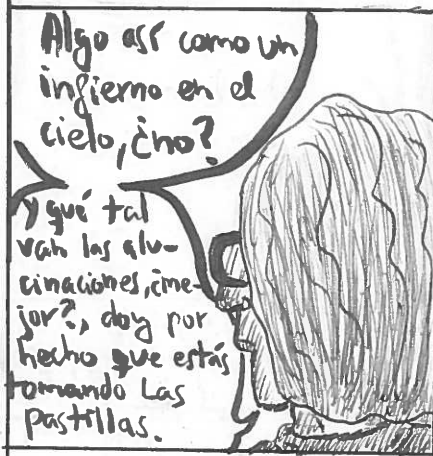 Algo así como un
infierno en el
cielo, ¿no?
y qué tal
van las alu-
cinaciones, ¿me-
jor?, doy por
hecho que estás
tomando Las
pastillas.